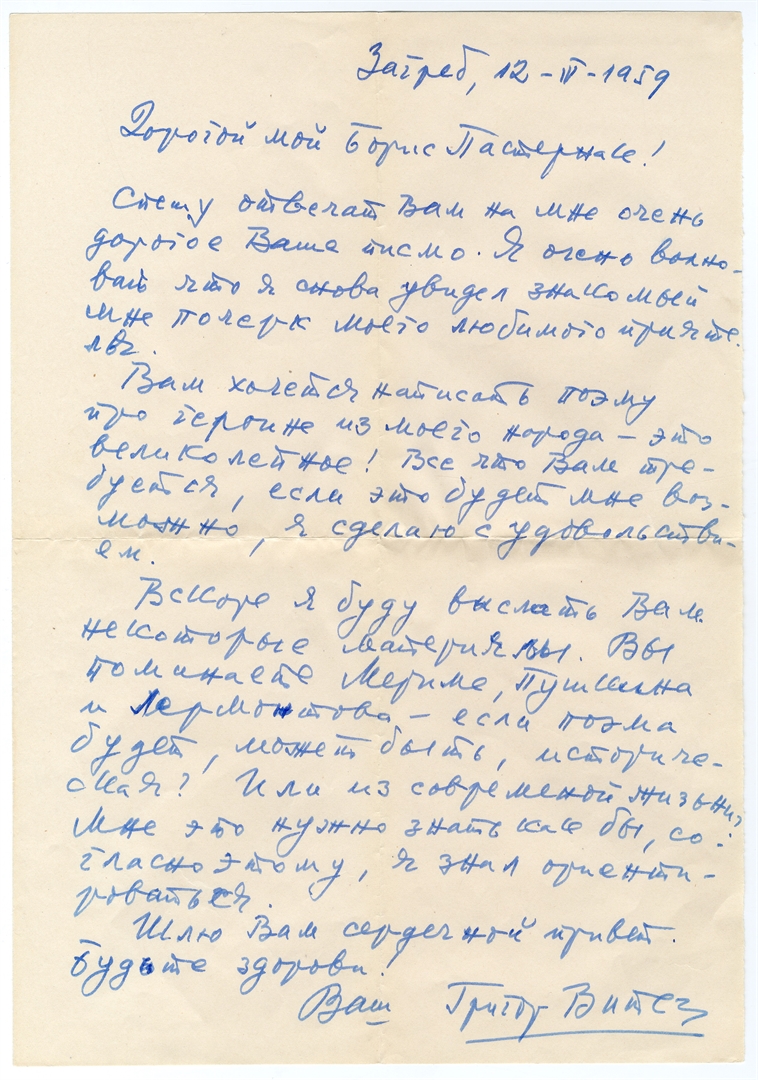 Загреб, 12-III-1959
Дорогой мой Борис Пастернак!
Спешу отвечат Вам на мне очень
дорогое Ваше писмо. Я очень волно-
ван что я снова увидел знакомый
мне почерк моего любимого прияте-
ля.
Вам хочется написать поэму
про героине из моего народа – это
великолепное! Все что Вам тре-
буется, если это будет мне воз-
можно, я сделаю с удовольстви-
ем.
Вскоре я буду выслать Вам
некоторые материялы. Вы
поминаете Мериме, Пушкина
и Лермонтова – если поэма
будет, может быть, историче-
ская? Или из современой жизьни?
Мне это нужно знать как бы, со-
гласно этому, я знал ориенти-
роваться.
Шлю Вам сердечной привет.
Будьте здорови!
Ваш Григор Витез